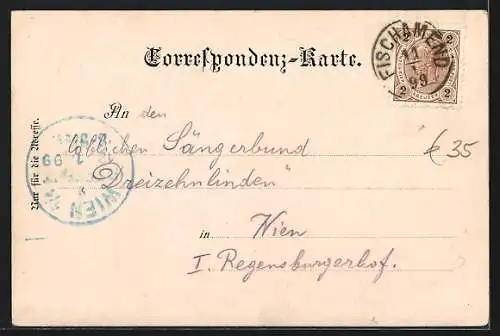 Correspondenz-Karte.
FISCHAMEND
11
99
2
2 2
An den
löblichen Sängerbund
„Dreizehnlinden"
in Wien
I. Regensburgerhof.
€ 35
Nur für die Adresse.
WIEN 1/1
99